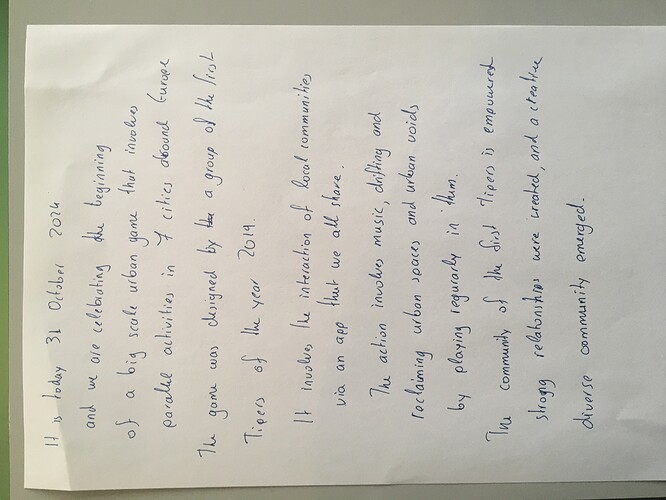 It is today 31 October 2024
and we are celebrating the beginning
of a big scale urban game that involves
parallel activities in 7 cities around Europe
The game was designed by the a group of the first
Tipers of the year 2019.
It involves the interaction of local communities
via an app that we all share.
The action involves music, drifting and
reclaiming urban spaces and urban voids
by playing regurarly in them.
The community of the first Tipers is empowered
strong relationships were created, and a creative
diverse community emerged.